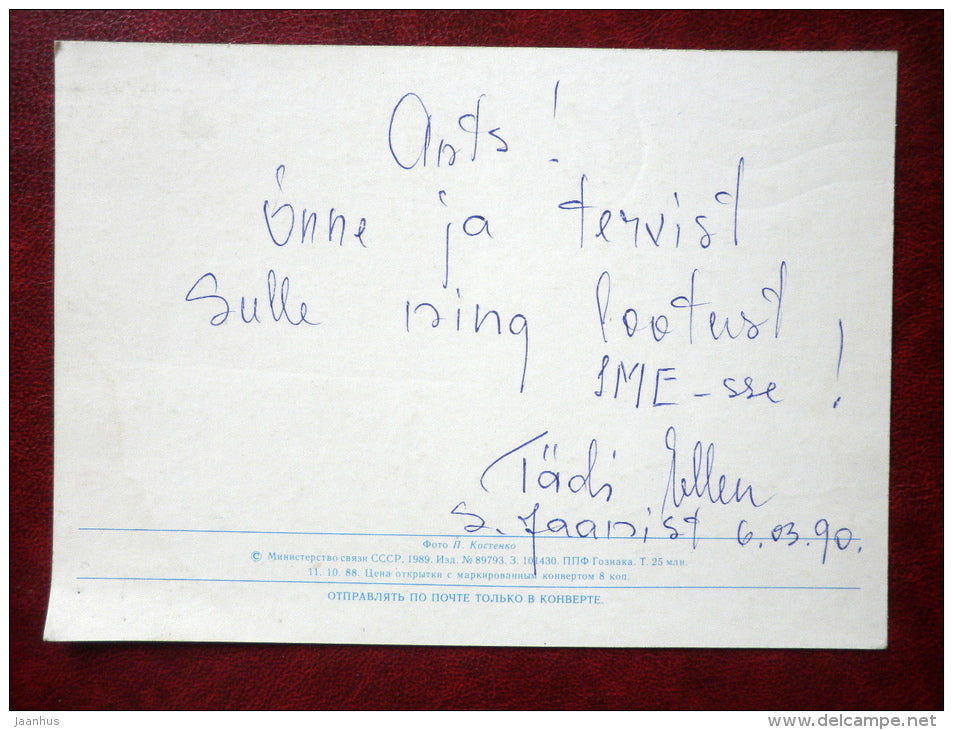 Ants!
Õnne ja tervist
Sulle ning lootust
IME-sse!
Tädi Ellen
S. Jaanist 6.03.90.
Фото П. Костенко
© Министерство связи СССР, 1989. Изд. № 89793. З. 101430. ППФ Гознака. Т. 25 млн.
11. 10. 88. Цена открытки с маркированным конвертом 8 коп.
ОТПРАВЛЯТЬ ПО ПОЧТЕ ТОЛЬКО В КОНВЕРТЕ.
Jaanhus
www.delcampe.net